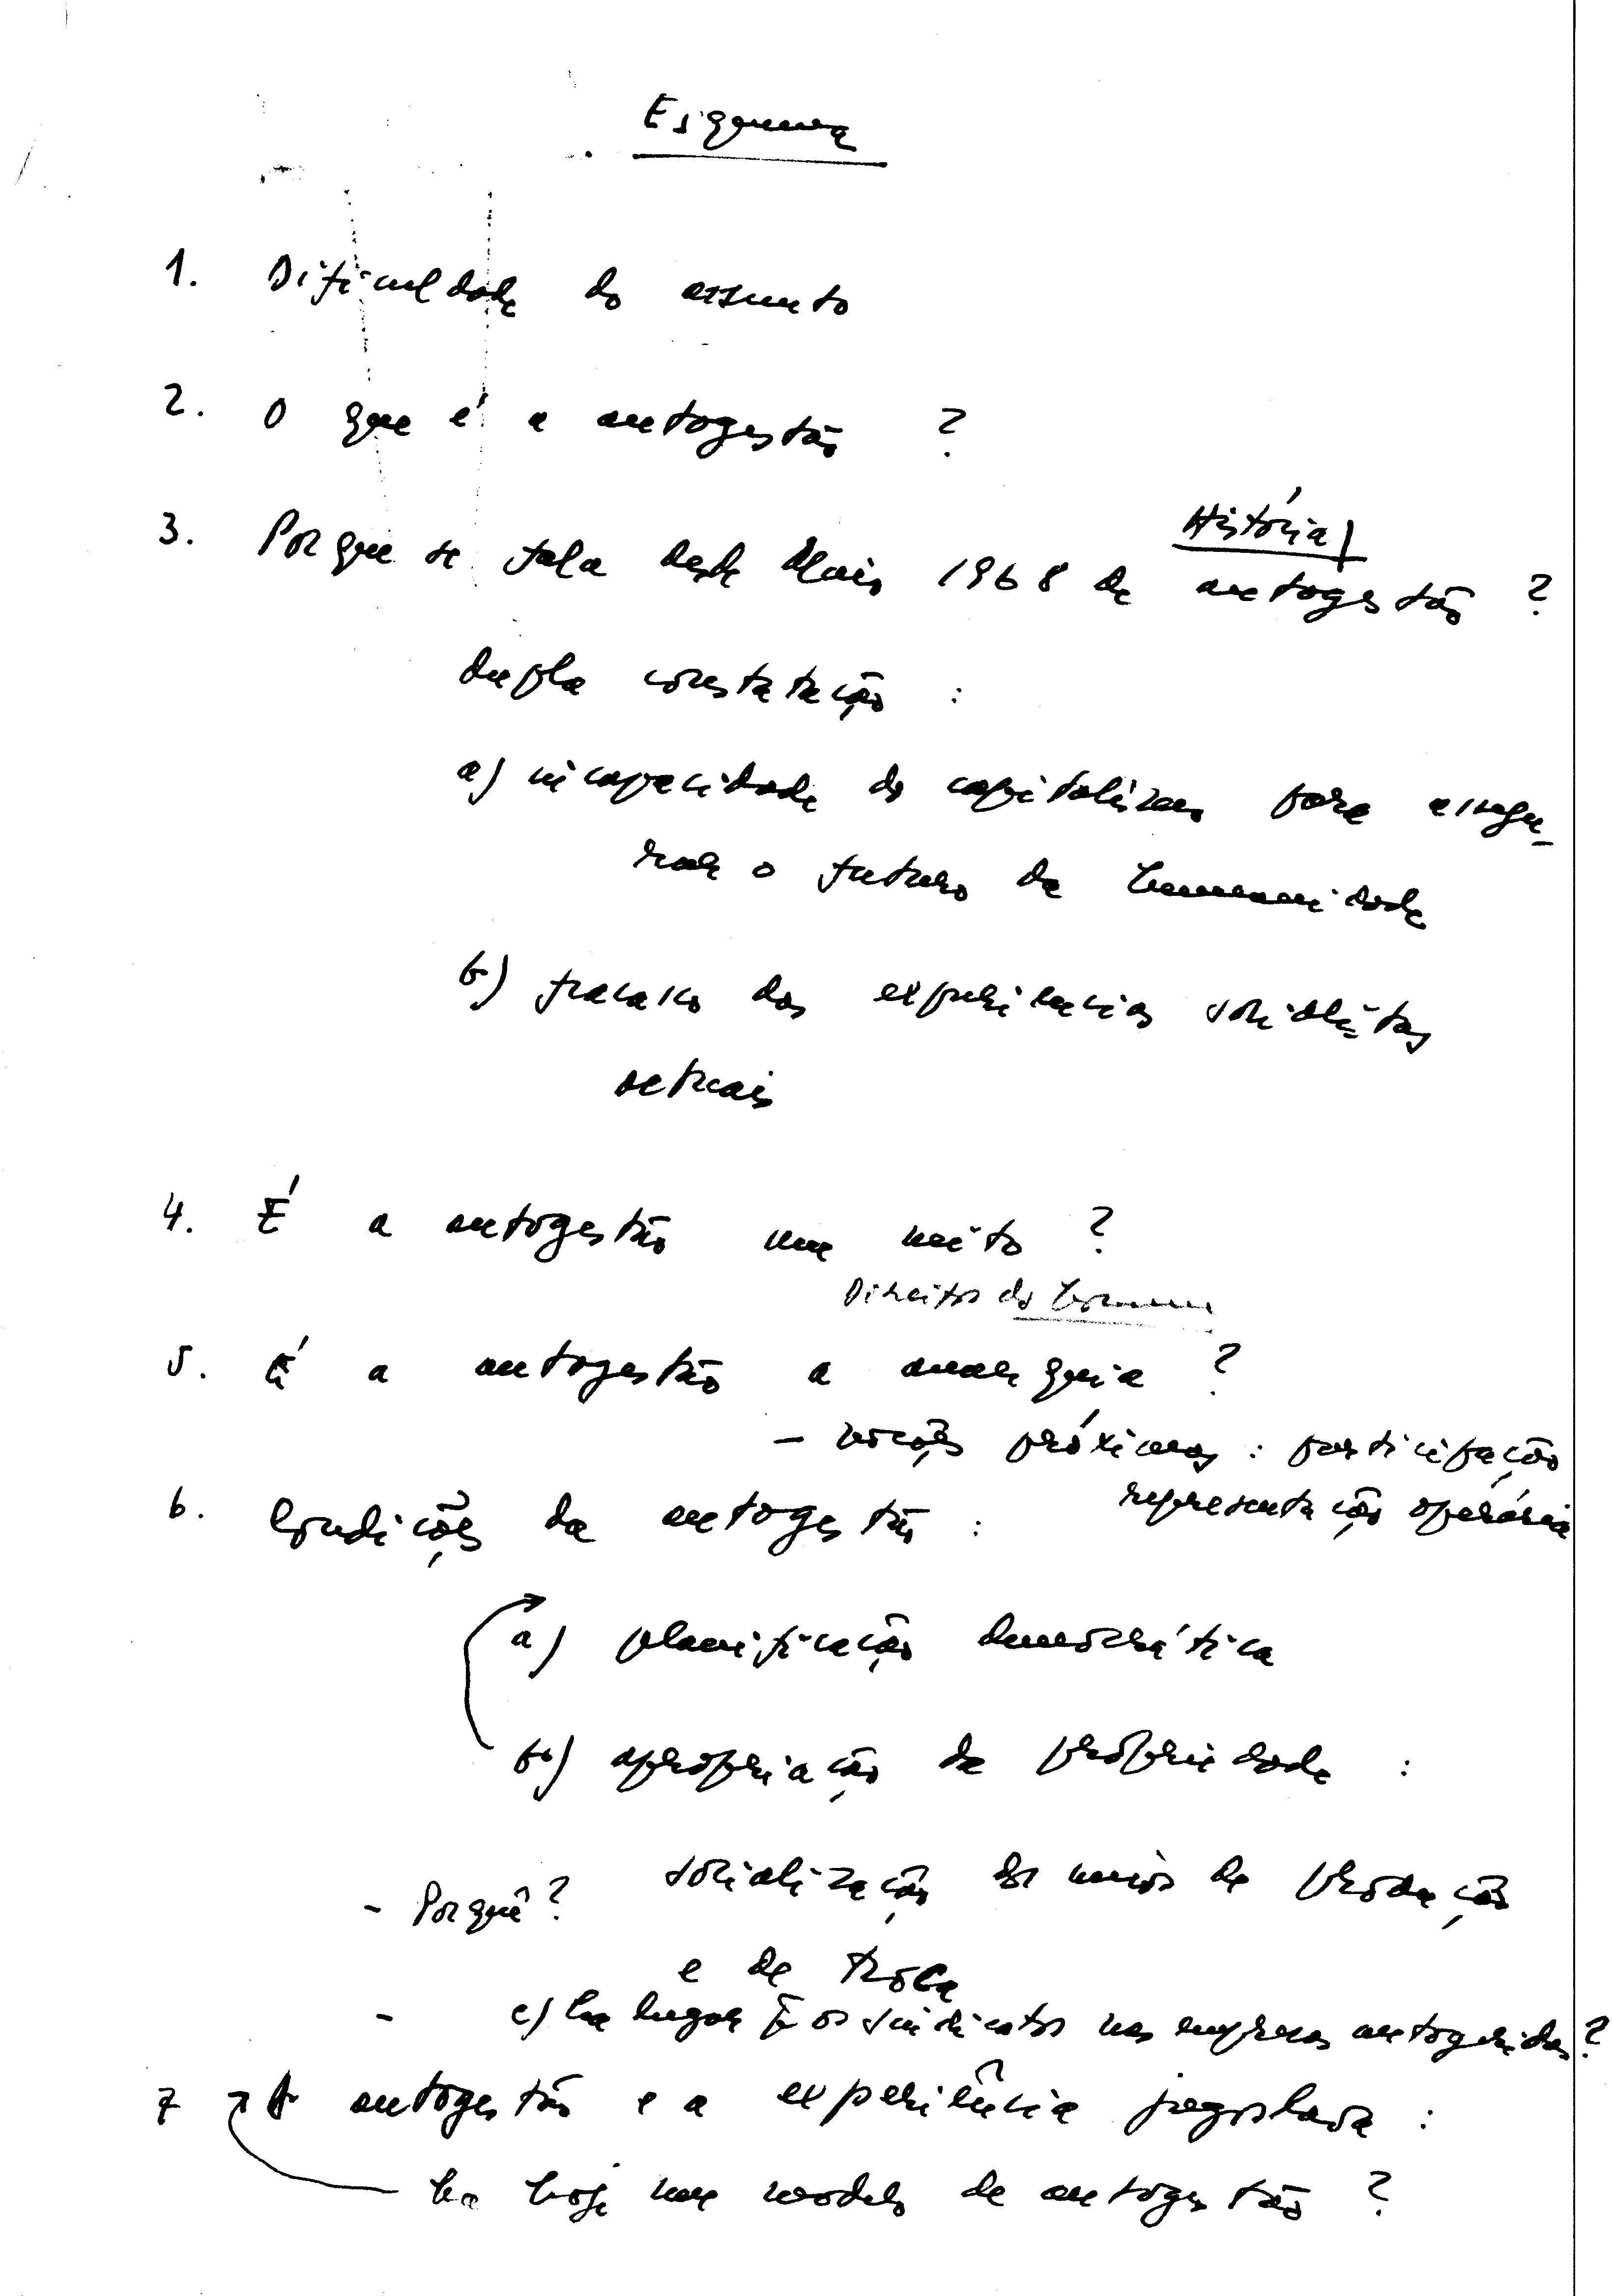 Esquema
1. Dificuldade do assunto
2. O que é a autogestão ?
História
3. Porque se fala desde Maio 1968 de autogestão ?
dupla constatação :
a) incapacidade do capitalismo para assegu-
rar o futuro da humanidade
b) fracasso das experiências socialistas
actuais
4. É a autogestão um mito ?
Direitos do homem
5. É a autogestão a anarquia ?
- noções próximas : participação
representação operária
6. Condições da autogestão :
a) planificação democrática
b) apropriação da propriedade :
socialização dos meios de produção
- Porquê ?
e de troca
- c) há lugar p os sindicatos nas empresas autogeridas ?
7 A autogestão e a experiência jugoslava :
há hoje um modelo de autogestão ?